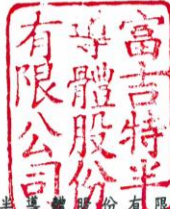 富吉特半
導體股份
有限公司
半導體股份有限